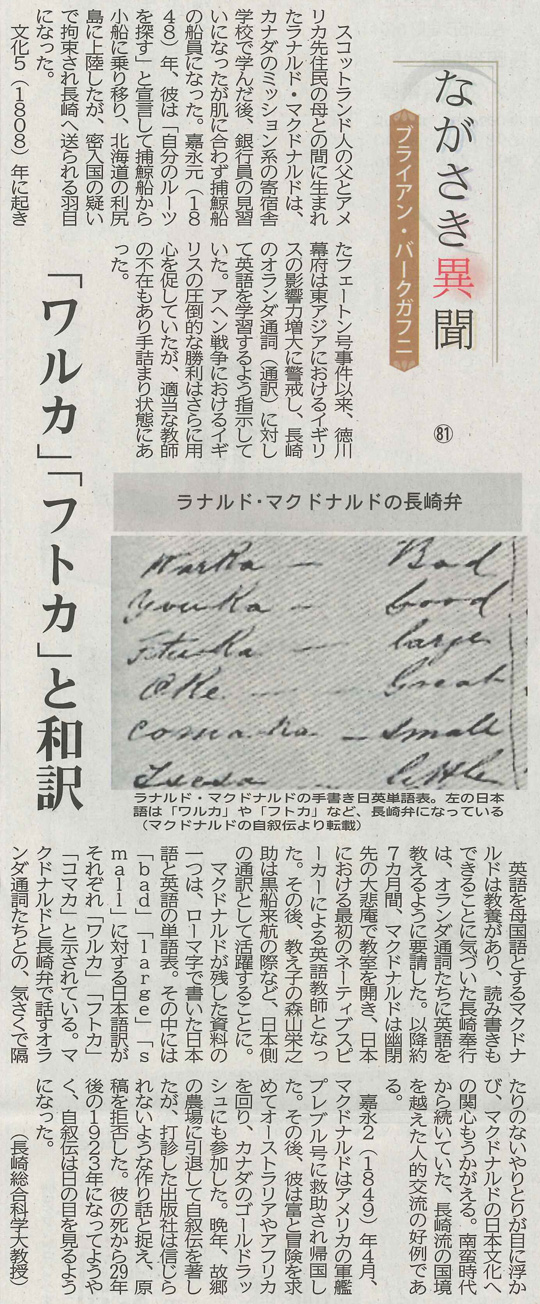 ながさき異聞
ブライアン・バークガフニ
㊶
スコットランド人の父とアメ
リカ先住民の母との間に生まれ
たラナルド・マクドナルドは、
カナダのミッション系の寄宿舎
学校で学んだ後、銀行員の見習
いになったが肌に合わず捕鯨船
の船員になった。嘉永元(18
48)年、彼は「自分のルーツ
を探す」と宣言して捕鯨船から
小船に乗り移り、北海道の利尻
島に上陸したが、密入国の疑い
で拘束され長崎へ送られる羽目
になった。
文化5(1808)年に起き
たフェートン号事件以来、徳川
幕府は東アジアにおけるイギリ
スの影響力増大に警戒し、長崎
のオランダ通詞(通訳)に対し
て英語を学習するよう指示して
いた。アヘン戦争におけるイギ
リスの圧倒的な勝利はさらに用
心を促していたが、適当な教師
の不在もあり手詰まり状態にあ
った。
「ワルカ」「フトカ」と和訳
ラナルド・マクドナルドの長崎弁
Warka — Bad
Youka — Good
Ftuka — large
Oke — Great
Comaka — Small
little
ラナルド・マクドナルドの手書き日英単語表。左の日本
語は「ワルカ」や「フトカ」など、長崎弁になっている
(マクドナルドの自叙伝より転載)
英語を母国語とするマクドナ
ルドは教養があり、読み書きも
できることに気づいた長崎奉行
は、オランダ通詞たちに英語を
教えるように要請した。以降約
7カ月間、マクドナルドは幽閉
先の大悲庵で教室を開き、日本
における最初のネーティブスピ
ーカーによる英語教師となっ
た。その後、教え子の森山栄之
助は黒船来航の際など、日本側
の通訳として活躍することに。
マクドナルドが残した資料の
一つは、ローマ字で書いた日本
語と英語の単語表。その中には
「bad」「large」「s
mall」に対する日本語訳が
それぞれ「ワルカ」「フトカ」
「コマカ」と示されている。マ
クドナルドと長崎弁で話すオラ
ンダ通詞たちとの、気さくで隔
たりのないやりとりが目に浮か
び、マクドナルドの日本文化へ
の関心もうかがえる。南蛮時代
から続いていた、長崎流の国境
を越えた人的交流の好例であ
る。
嘉永2(1849)年4月、
マクドナルドはアメリカの軍艦
プレブル号に救助され帰国し
た。その後、彼は富と冒険を求
めてオーストラリアやアフリカ
を回り、カナダのゴールドラッ
シュにも参加した。晩年、故郷
の農場に引退して自叙伝を著し
たが、打診した出版社は信じら
れないような作り話と捉え、原
稿を拒否した。彼の死から29年
後の1923年になってようや
く、自叙伝は日の目を見るよう
になった。
(長崎総合科学大教授)